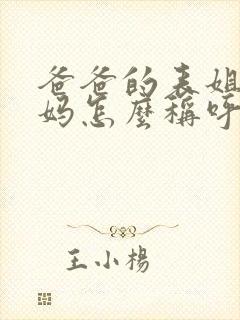 爸爸的表姐
妈怎麼稱呼
王小楊